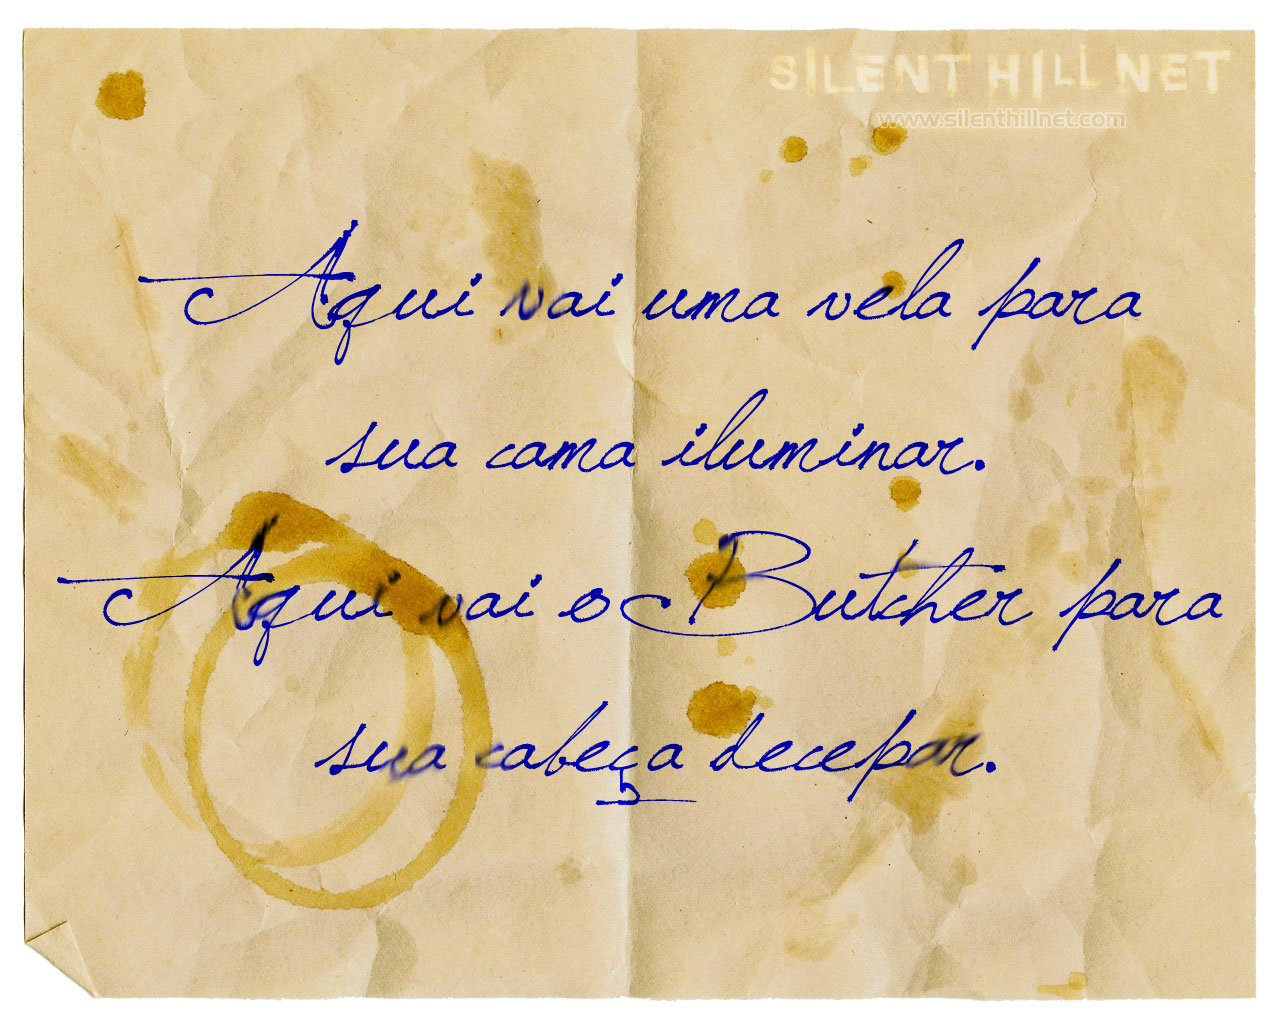 SILENT HILL NET
www.silenthillnet.com
Aqui vai uma vela para
sua cama iluminar.
Aqui vai o Butcher para
sua cabeça decepar.